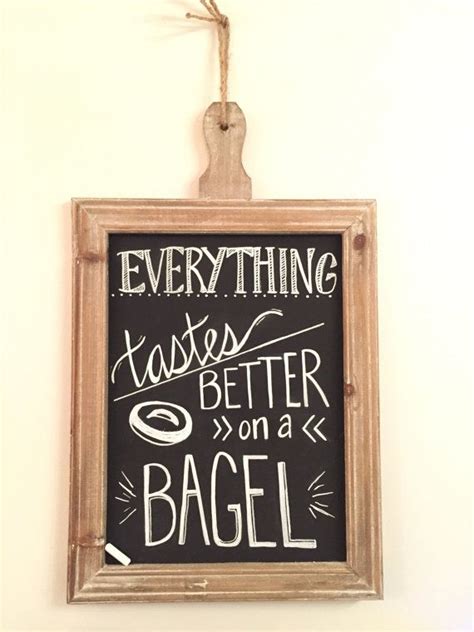 EVERYTHING
tastes
BETTER
>> on a <<
BAGEL